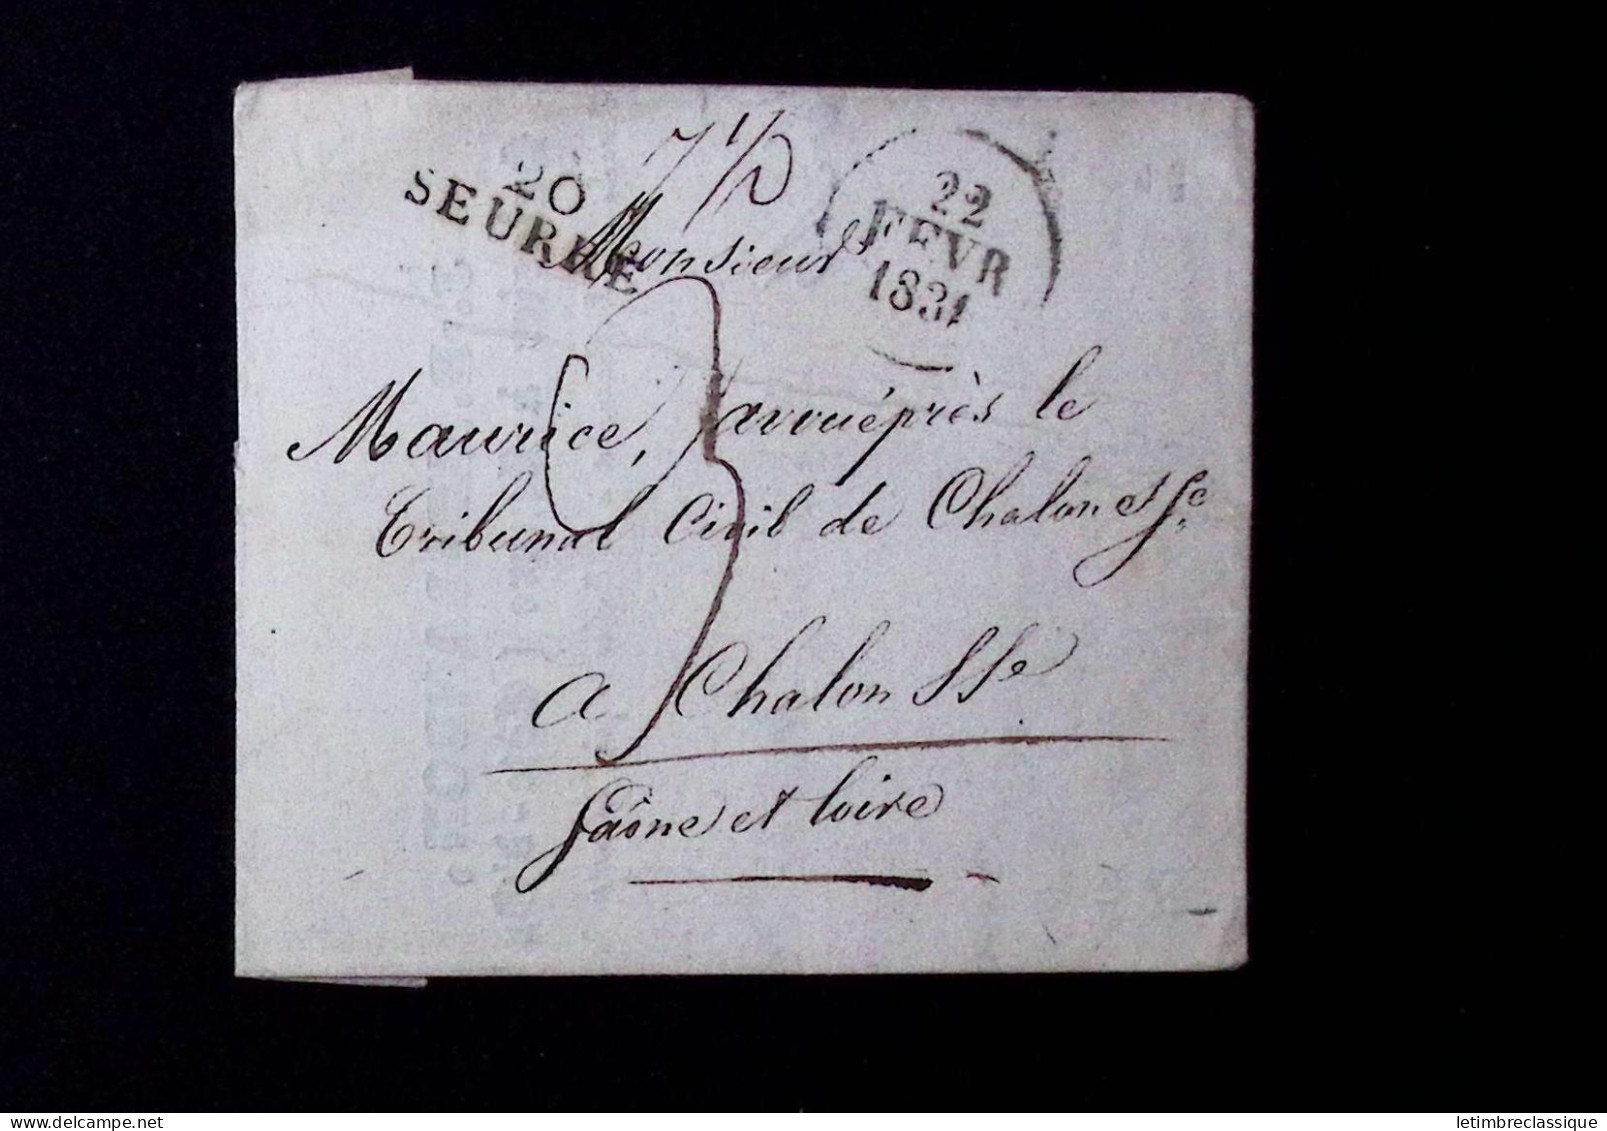 7 1/2
20
SEURRE
22
FEVR
1831
Monsieur
Maurice, avoué près le
Tribunal Civil de Chalon s/Se
3
a Chalon S Se
Saône et Loire
letimbreclassique